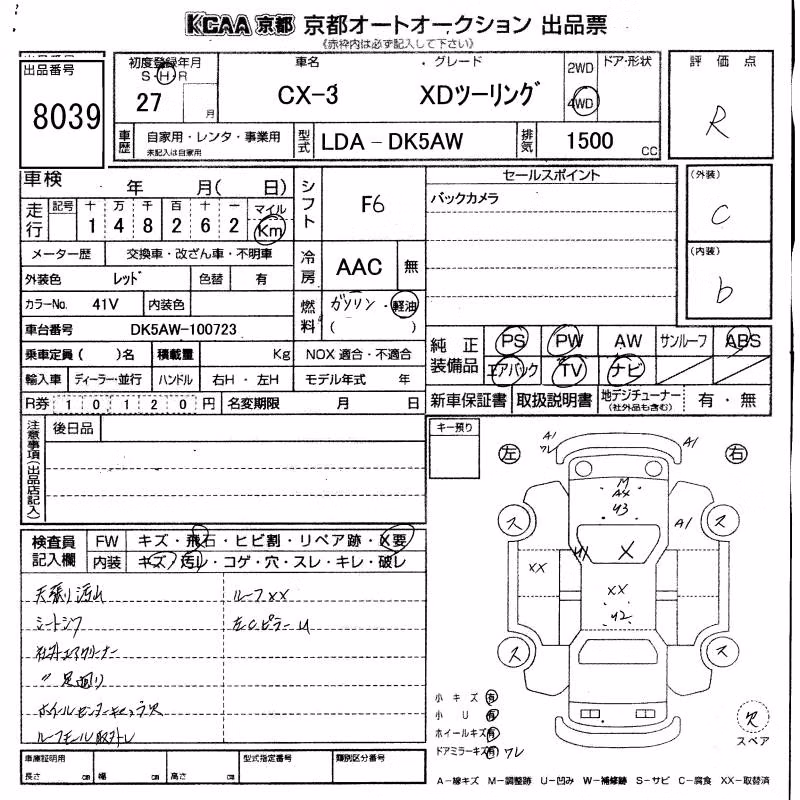 KCAA 京都 京都オートオークション 出品票
《赤枠内は必ず記入して下さい》
出品番号
8039
初度登録年月
S・H・R
27 月
車名 ・ グレード
CX-3 XDツーリング
2WD
4WD
ドア・形状
評価点
R
車歴
自家用・レンタ・事業用
未記入は自家用
型式
LDA-DK5AW
排気
1500 CC
車検 年 月( 日)
シフト
F6
セールスポイント
バックカメラ
(外装)
C
(内装)
b
走行
記号 十 万 千 百 十 一 マイル
1 4 8 2 6 2 Km
メーター歴 交換車・改ざん車・不明車
冷房
AAC 無
外装色 レッド 色替 有
カラーNo. 41V 内装色
燃料
ガソリン・軽油
( )
車台番号 DK5AW-100723
乗車定員( )名 積載量 Kg NOX 適合・不適合
輸入車 ディーラー・並行 ハンドル 右H・左H モデル年式 年
R券 10120円 名変期限 月 日
純正装備品
PS PW AW サンルーフ ABS
エアバック TV ナビ
新車保証書 取扱説明書 地デジチューナー(社外品も含む) 有・無
注意事項(出品店記入)
後日品
キー預り
左 右
検査員記入欄
FW キズ・飛石・ヒビ割・リペア跡・X要
内装 キズ・汚レ・コゲ・穴・スレ・キレ・破レ
天張リ汚レ
シートシワ
社外エアクリーナー
〃 足廻り
ホイルセンターキャップ欠
ルーフモール取外レ
ルーフXX
左Cピラー U
A1
ワレ
A1
M
A4
U3
A1
U1
X
XX
XX
U2
ス
ス
ス
ス
小キズ 有
小U 有
ホイールキズ 有
ドアミラーキズ 有 ワレ
欠
スペア
車庫証明用
長さ cm 幅 cm 高さ cm
型式指定番号
類別区分番号
A-線キズ M-調整跡 U-凹み W-補修跡 S-サビ C-腐食 XX-取替済